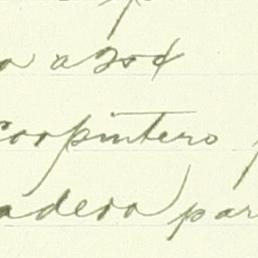 a 20¢
carpintero
adera par